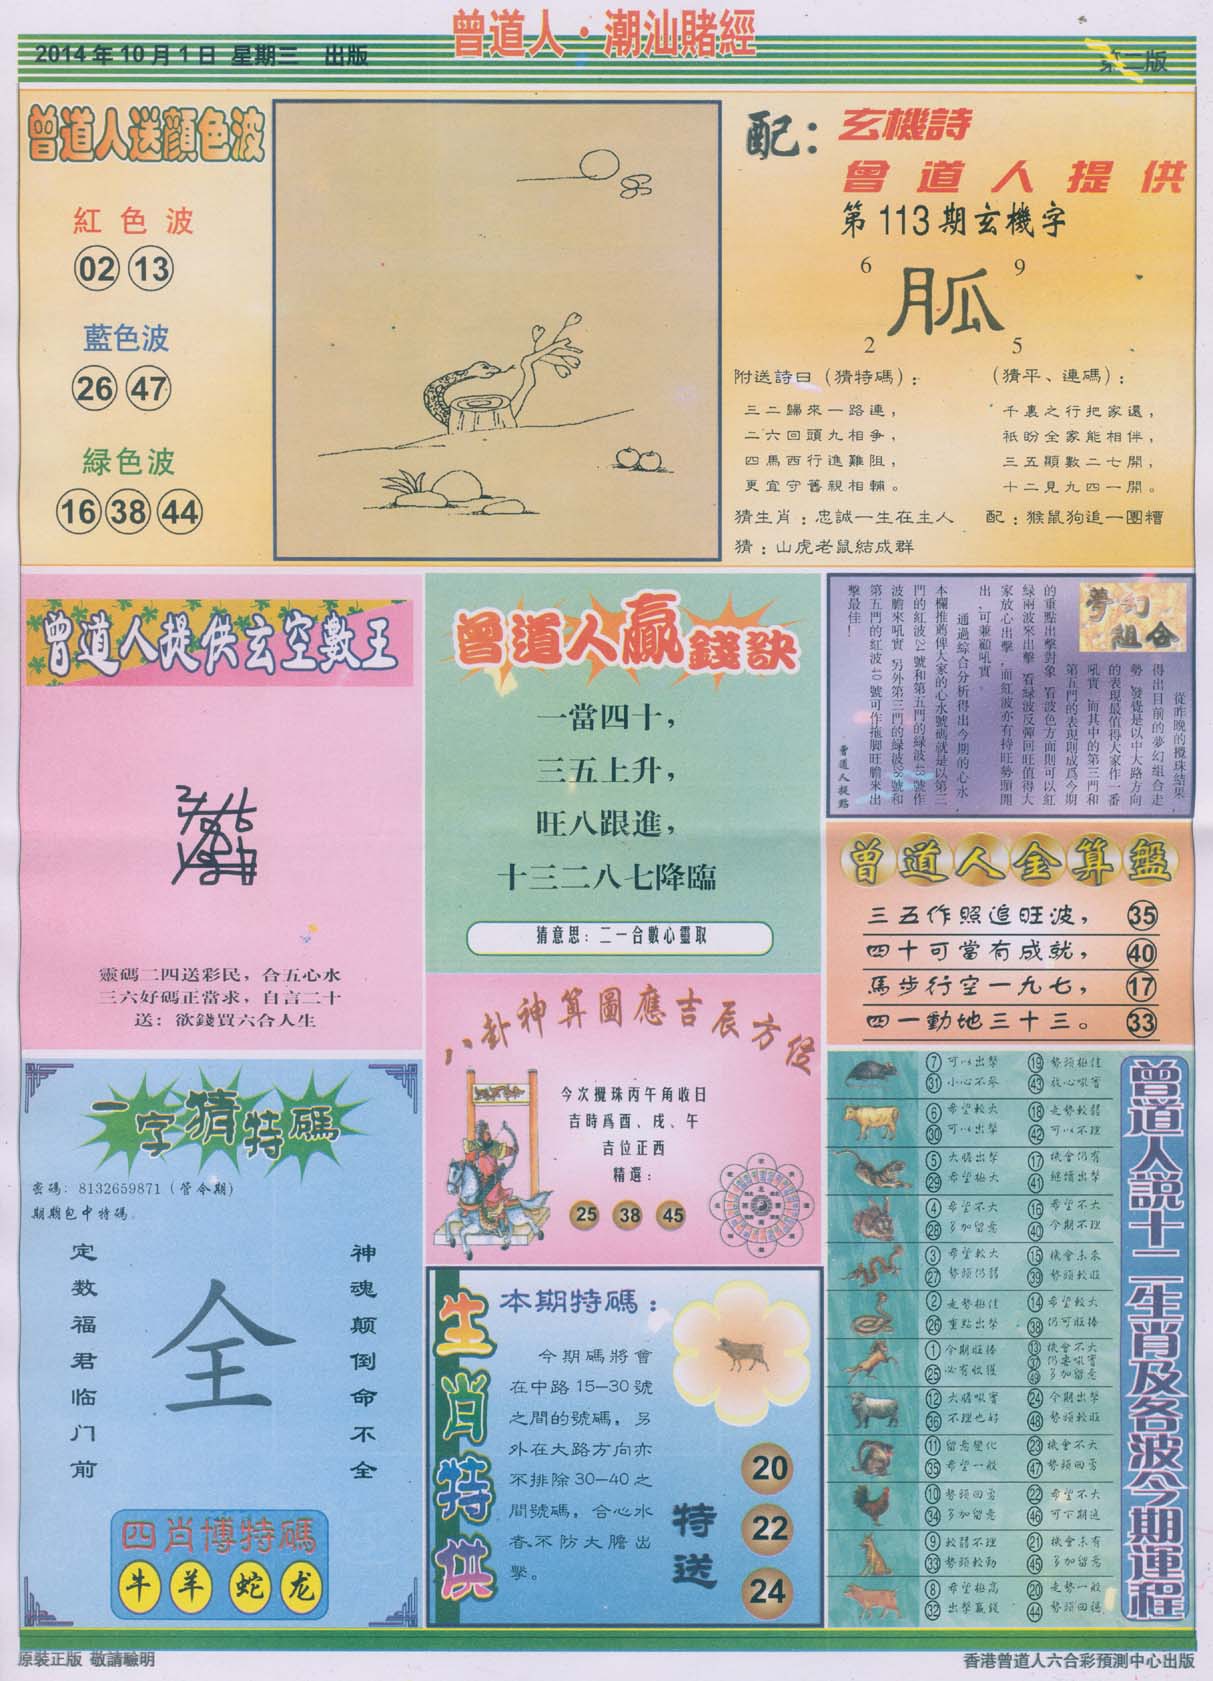 曾道人·潮汕賭經
2014年10月1日 星期三 出版
第二版
曾道人送顏色波
紅色波
02 13
藍色波
26 47
緑色波
16 38 44
配：
玄機詩
曾道人提供
第113期玄機字
6 9
胍
2 5
附送詩曰（猜特碼）：
三二歸來一路連，
二六回頭九相爭，
四馬西行進難阻，
更宜守舊親相輔。
（猜平、連碼）：
千裏之行把家還，
祇盼全家能相伴，
三五顯數二七開，
十二見九四一開。
猜生肖：忠誠一生在主人
配：猴鼠狗追一團糟
猜：山虎老鼠結成群
曾道人提供玄空數王
靈碼二四送彩民，合五心水
三六好碼正當求，自言二十
送：欲錢買六合人生
曾道人贏錢訣
一當四十，
三五上升，
旺八跟進，
十三二八七降臨
猜意思：二一合數心靈取
夢幻
組合
從昨晚的攪珠結果，
得出目前的夢幻組合走
勢，發覺是以中大路方向
的表現最值得大家作一番
吼實，而其中的第三門和
第五門的表現則成爲今期
的重點出擊對象，看波色方面則可以紅
緑兩波來出擊，看緑波反彈回旺值得大
家放心出擊，而紅波亦有持旺勢頭開
出，可兼顧吼實。
通過綜合分析得出今期的心水，
本欄推薦俾大家的心水號碼就是以第三
門的紅波24號和第五門的緑波43號作
波膽來吼實，另外第三門的緑波28號和
第五門的紅波40號可作拖脚旺膽來出
擊最佳！
曾道人提點
曾道人金算盤
三五作照追旺波， 35
四十可當有成就， 40
馬步行空一九七， 17
四一動地三十三。 33
八卦神算圖應吉辰方位
今次攪珠丙午角收日
吉時爲酉、戌、午
吉位正西
精選：
25 38 45
一字猜特碼
密碼：8132659871（管今期）
期期包中特碼。
神魂颠倒命不全
全
定数福君临门前
四肖博特碼
牛 羊 蛇 龙
生肖特供
本期特碼：
今期碼將會
在中路15—30號
之間的號碼，另
外在大路方向亦
不排除30—40之
間號碼，合心水
者不防大膽出
擊。
特送
20
22
24
曾道人説十二生肖及各波今期運程
7 可以出擊 19 勢頭極佳
31 小心不夢 43 放心吼實
6 希望較大 18 走勢較弱
30 可以出擊 42 可以不理
5 大膽出擊 17 機會仍有
29 希望極大 41 繼續出擊
4 希望不大 16 希望不大
28 多加留意 40 今期不理
3 希望較大 15 機會未來
27 勢頭仍弱 39 勢頭較旺
2 走勢極佳 14 希望較大
26 重點出擊 38 仍可旺捧
1 今期旺捧 13 機會不大
25 必有收獲 37 仍要吼實
49 多加留意
12 大膽吼實 24 今期出擊
36 不理也好 48 勢頭較旺
11 留意變化 23 機會不大
35 希望一般 47 勢頭回勇
10 勢頭回勇 22 希望不大
34 多加留意 46 可下期追
9 較弱不理 21 機會未有
33 勢頭較勁 45 多加留意
8 希望極高 20 走勢一般
32 出擊贏錢 44 勢頭回穩
原裝正版 敬請驗明
香港曾道人六合彩預測中心出版